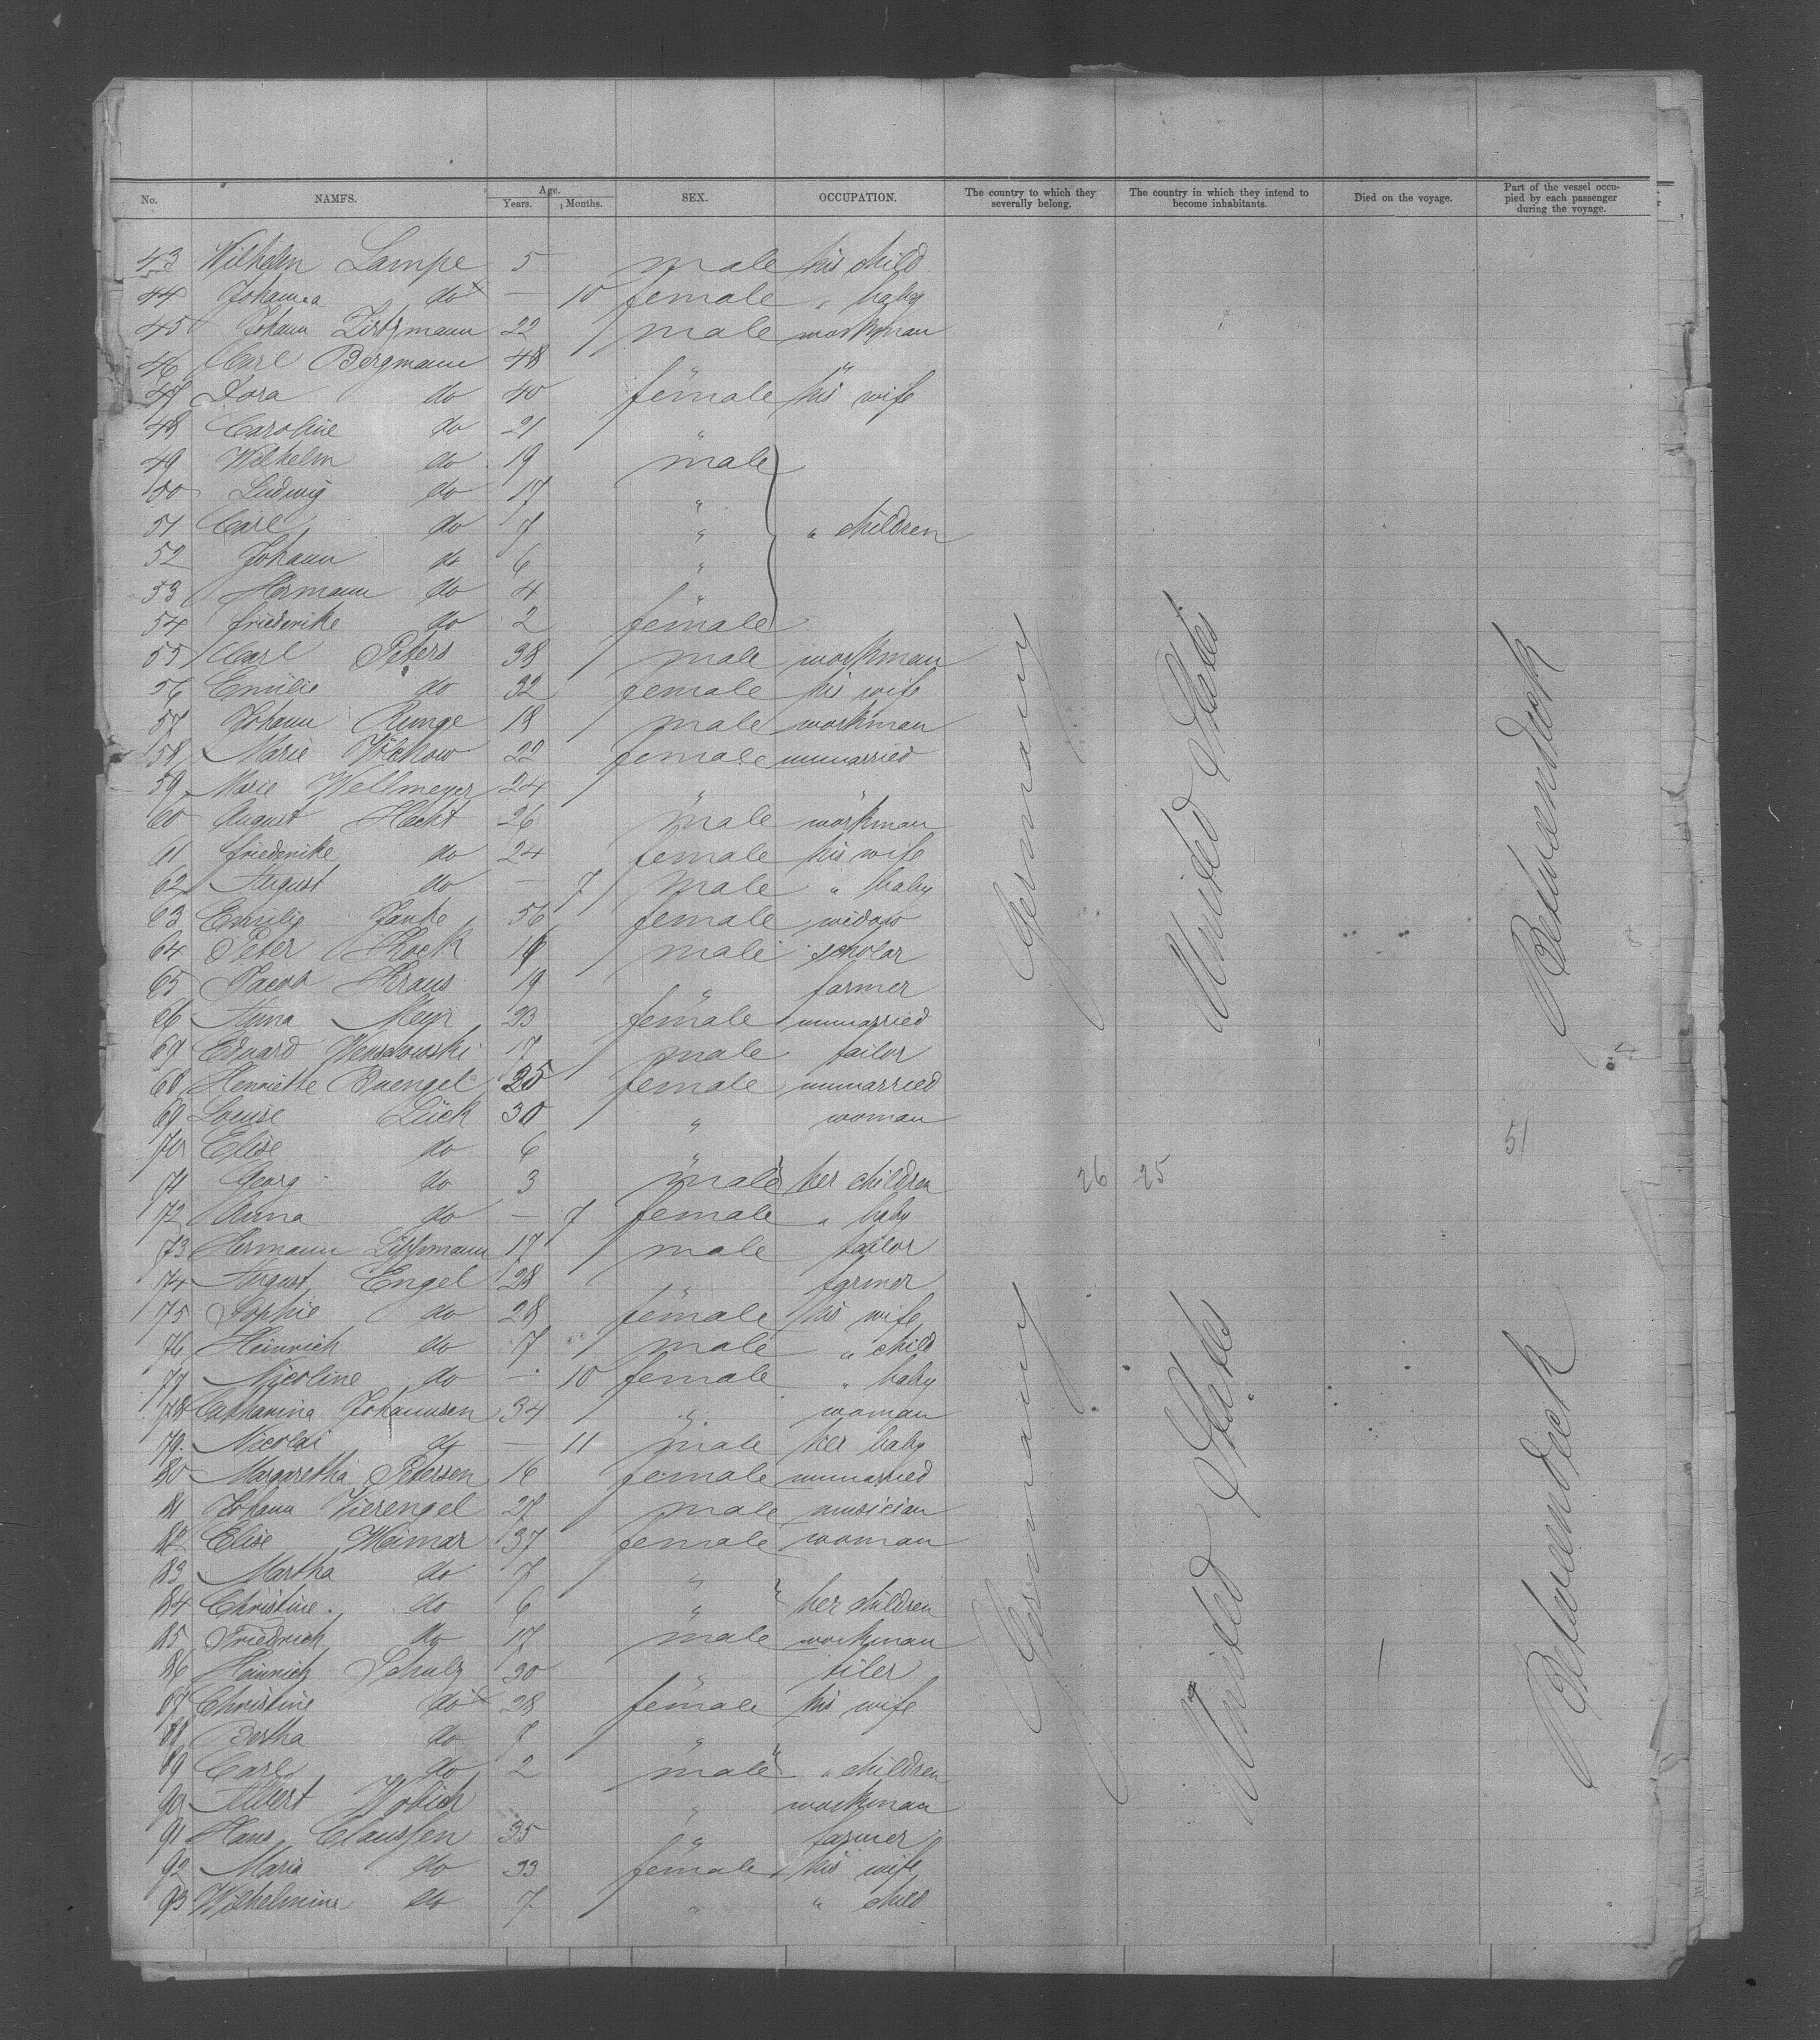 No. NAMES. Age. Years. Months. SEX. OCCUPATION. The country to which they severally belong. The country in which they intend to become inhabitants. Died on the voyage. Part of the vessel occupied by each passenger during the voyage.
43 Wilhelm Lampe 5 male his child
44 Johanna do — 10 female " baby
45 Johann 22 male workman
46 Carl Bergmann 48 " "
47 Dora do 40 female his wife
48 Caroline do 21 "
49 Wilhelm do 19 male
50 Ludwig do 17 "
51 Carl do 7 " " children
52 Johann do 6 "
53 Hermann do 4 "
54 Friederike do 2 female
55 Carl Peters 38 male workman
56 Emilie do 32 female his wife
57 Johann Runge 18 male workman
58 Marie 22 female unmarried
59 Marie Wellmeyer 24 " "
60 August Hecht 26 male workman
61 Friederike do 24 female his wife
62 August do — 7 male " baby
63 Emilie Janke 56 female widow
64 Peter male scholar
65 Jacob Kraus 19 " farmer
66 Anna Meyr 23 female unmarried
67 Eduard 17 male tailor
68 Henriette female unmarried
69 Louise Lück 30 " woman
70 Elise do 6 "
71 Georg do 3 male her children
72 Anna do — 7 female " baby
73 Hermann Lippmann 17 male tailor
74 August Engel 28 " farmer
75 Sophie do 28 female his wife
76 Heinrich do 7 male " child
77 Nicoline do — 10 female " baby
78 Catharina Johannsen 34 " woman
79 Nicolai do — 11 male her baby
80 Margaretha Petersen 16 female unmarried
81 Johann Vierengel 27 male musician
82 Elise Weimar 37 female woman
83 Martha do 7 "
84 Christine do 6 " her children
85 Friedrich do 17 male workman
86 Heinrich Schulz 30 " tiler
87 Christine do 28 female his wife
88 Bertha do 7 "
89 Carl do 2 male " children
90 Albert " workman
91 Hans Claussen 35 " farmer
92 Maria do 33 female his wife
93 Wilhelmine do 7 " " child
Germany
United States
Betweendeck
26 25
51
Germany
United States
—
Betweendeck